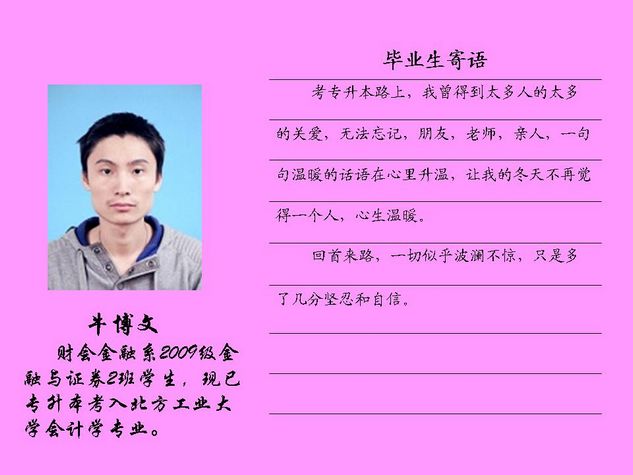 毕业生寄语
考专升本路上，我曾得到太多人的太多
的关爱，无法忘记，朋友，老师，亲人，一句
句温暖的话语在心里升温，让我的冬天不再觉
得一个人，心生温暖。
回首来路，一切似乎波澜不惊，只是多
了几分坚忍和自信。
牛博文
财会金融系2009级金
融与证券2班学生，现已
专升本考入北方工业大
学会计学专业。